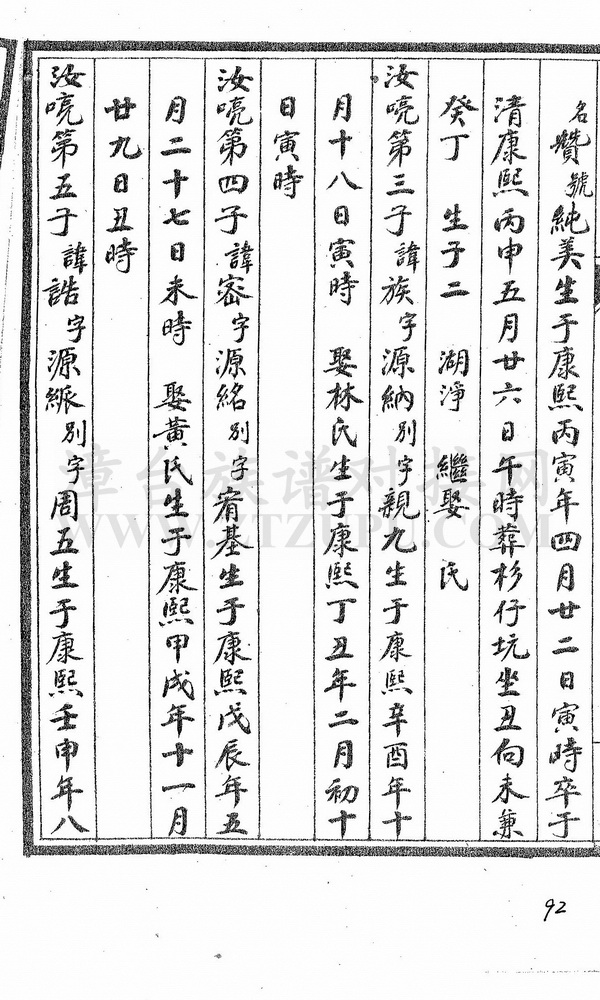 名贊號純美生于康熙丙寅年四月廿二日寅時卒于
清康熙丙申五月廿六日午時葬杉仔坑坐丑向未兼
癸丁 生子二 湖淨 繼娶 氏
汝喨第三子諱族字源納別字親九生于康熙辛酉年十
月十八日寅時 娶林氏生于康熙丁丑年二月初十
日寅時
汝喨第四子諱密字源紹別字宥基生于康熙戊辰年五
月二十七日未時 娶黃氏生于康熙甲戌年十一月
廿九日丑時
汝喨第五子諱誥字源縀別字周五生于康熙壬申年八
漳台族谱对接网
WWW.ZTZUPU.COM
92